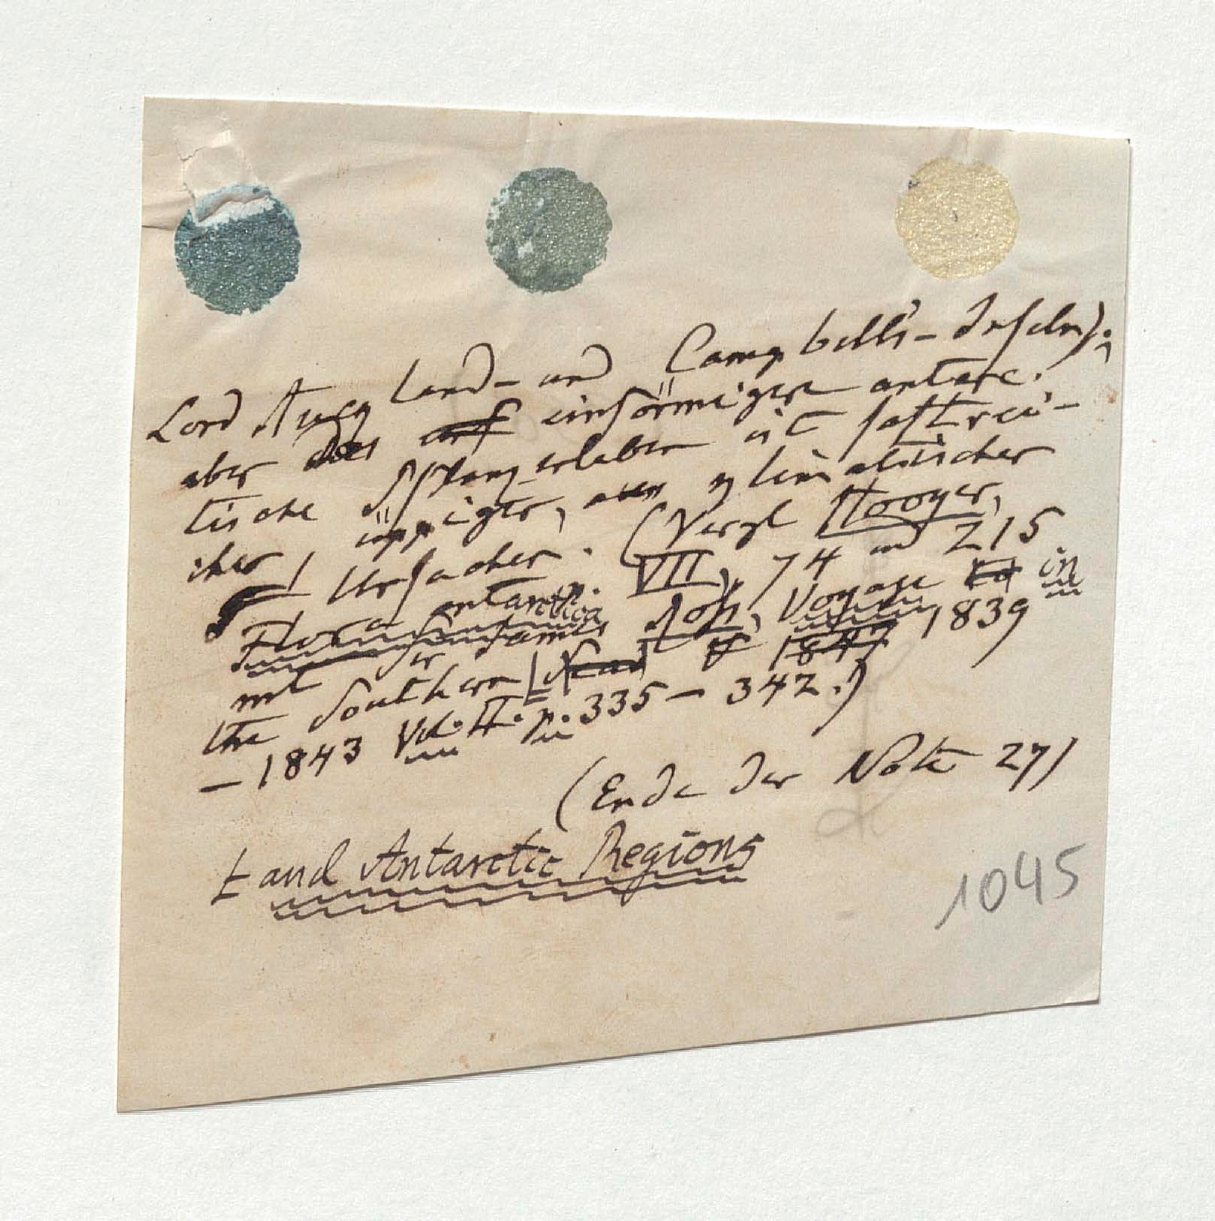 Lord Auckland- und Campbell's-Inseln);
aber das auf einförmigere antarc-
tische Pflanzenleben ist saftrei-
cher, üppiger, aus klimatischer
Ursachen. (Vergl Hooker,
Flora antarctica p. VII, 74 und 215
mit Sir James Ross, Voyage to in
the Southern 1847 1839
– 1843 Vol. II. p. 335 – 342.)
(Ende der Note 27)
Ⱶ and Antarctic Regions
1045